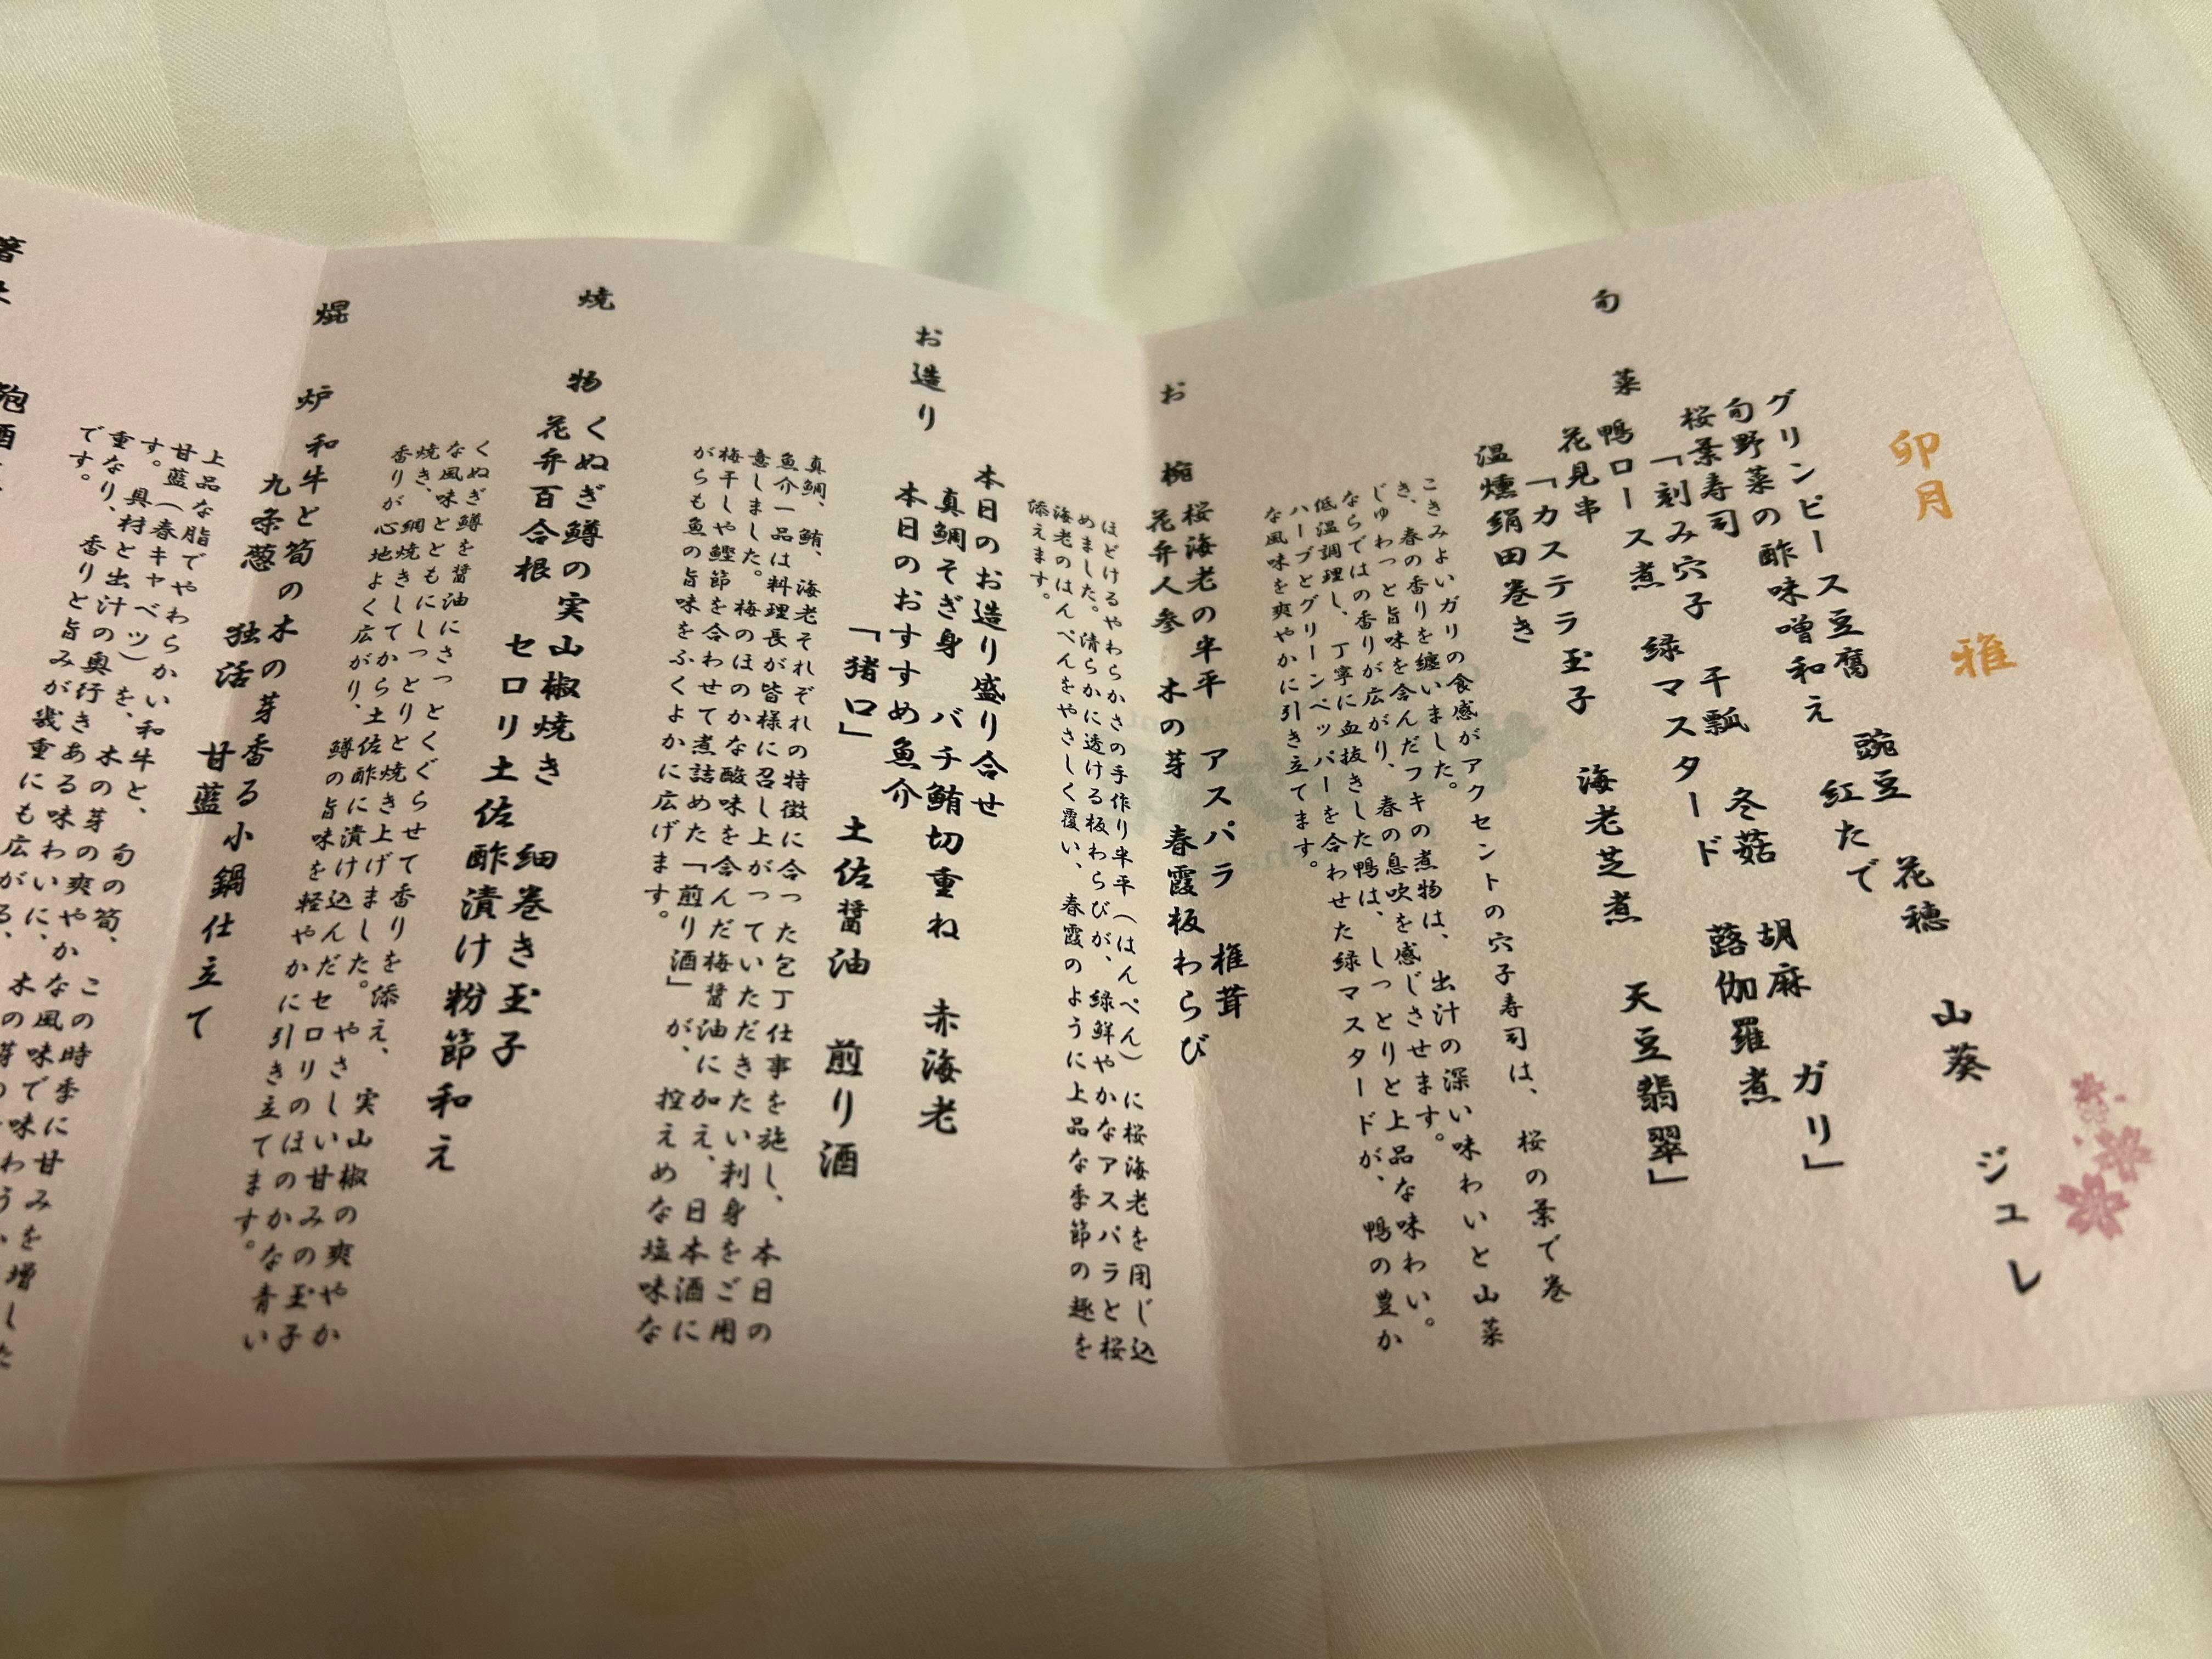 卯月 雅
グリンピース豆腐 豌豆 花穂 山葵 ジュレ
旬野菜の酢味噌和え 紅たで
桜葉寿司
「刻み穴子 干瓢 冬菇 胡麻 ガリ」
旬菜
鴨ロース煮 緑マスタード 蕗伽羅煮
花見串
「カステラ玉子 海老芝煮 天豆翡翠」
温燻絹田巻き
こきみよいガリの食感がアクセントの穴子寿司は、桜の葉で巻
き、春の香りを纏いました。
じゅわっと旨味を含んだフキの煮物は、出汁の深い味わいと山菜
ならではの香りが広がり、春の息吹を感じさせます。
低温調理し、丁寧に血抜きした鴨は、しっとりと上品な味わい。
ハーブとグリーンペッパーを合わせた緑マスタードが、鴨の豊か
な風味を爽やかに引き立てます。
お椀
桜海老の半平 アスパラ 椎茸
花弁人参 木の芽 春霞板わらび
ほどけるやわらかさの手作り半平(はんぺん)に桜海老を閉じ込
めました。清らかに透ける板わらびが、緑鮮やかなアスパラと桜
海老のはんぺんをやさしく覆い、春霞のように上品な季節の趣を
添えます。
お造り
本日のお造り盛り合せ
真鯛そぎ身 バチ鮪切重ね 赤海老
本日のおすすめ魚介
「猪口」 土佐醤油 煎り酒
真鯛、鮪、海老それぞれの特徴に合った包丁仕事を施し、本日の
魚介一品は料理長が皆様に召し上がっていただきたい刺身をご用
意しました。梅のほのかな酸味を含んだ梅醤油に加え、日本酒に
梅干しや鰹節を合わせて煮詰めた「煎り酒」が、控えめな塩味な
がらも魚の旨味をふくよかに広げます。
焼物
くぬぎ鱒の実山椒焼き 細巻き玉子
花弁百合根 セロリ土佐酢漬け粉節和え
くぬぎ鱒を醤油にさっとくぐらせて香りを添え、実山椒の爽やか
な風味とともにしっとりと焼き上げました。やさしい甘みの玉子
焼き、網焼きしてから土佐酢に漬け込んだセロリのほのかな青い
香りが心地よく広がり、鱒の旨味を軽やかに引き立てます。
焜炉
和牛と筍の木の芽香る小鍋仕立て
九条葱 独活 甘藍
上品な脂でやわらかい和牛と、旬の筍、この時季に甘みを増した
甘藍(春キャベツ)を、木の芽の爽やかな風味で味わう
す。具材と出汁の奥行きある味わいに、木の芽の
重なり、香りと旨みが幾重にも広がる、
です。